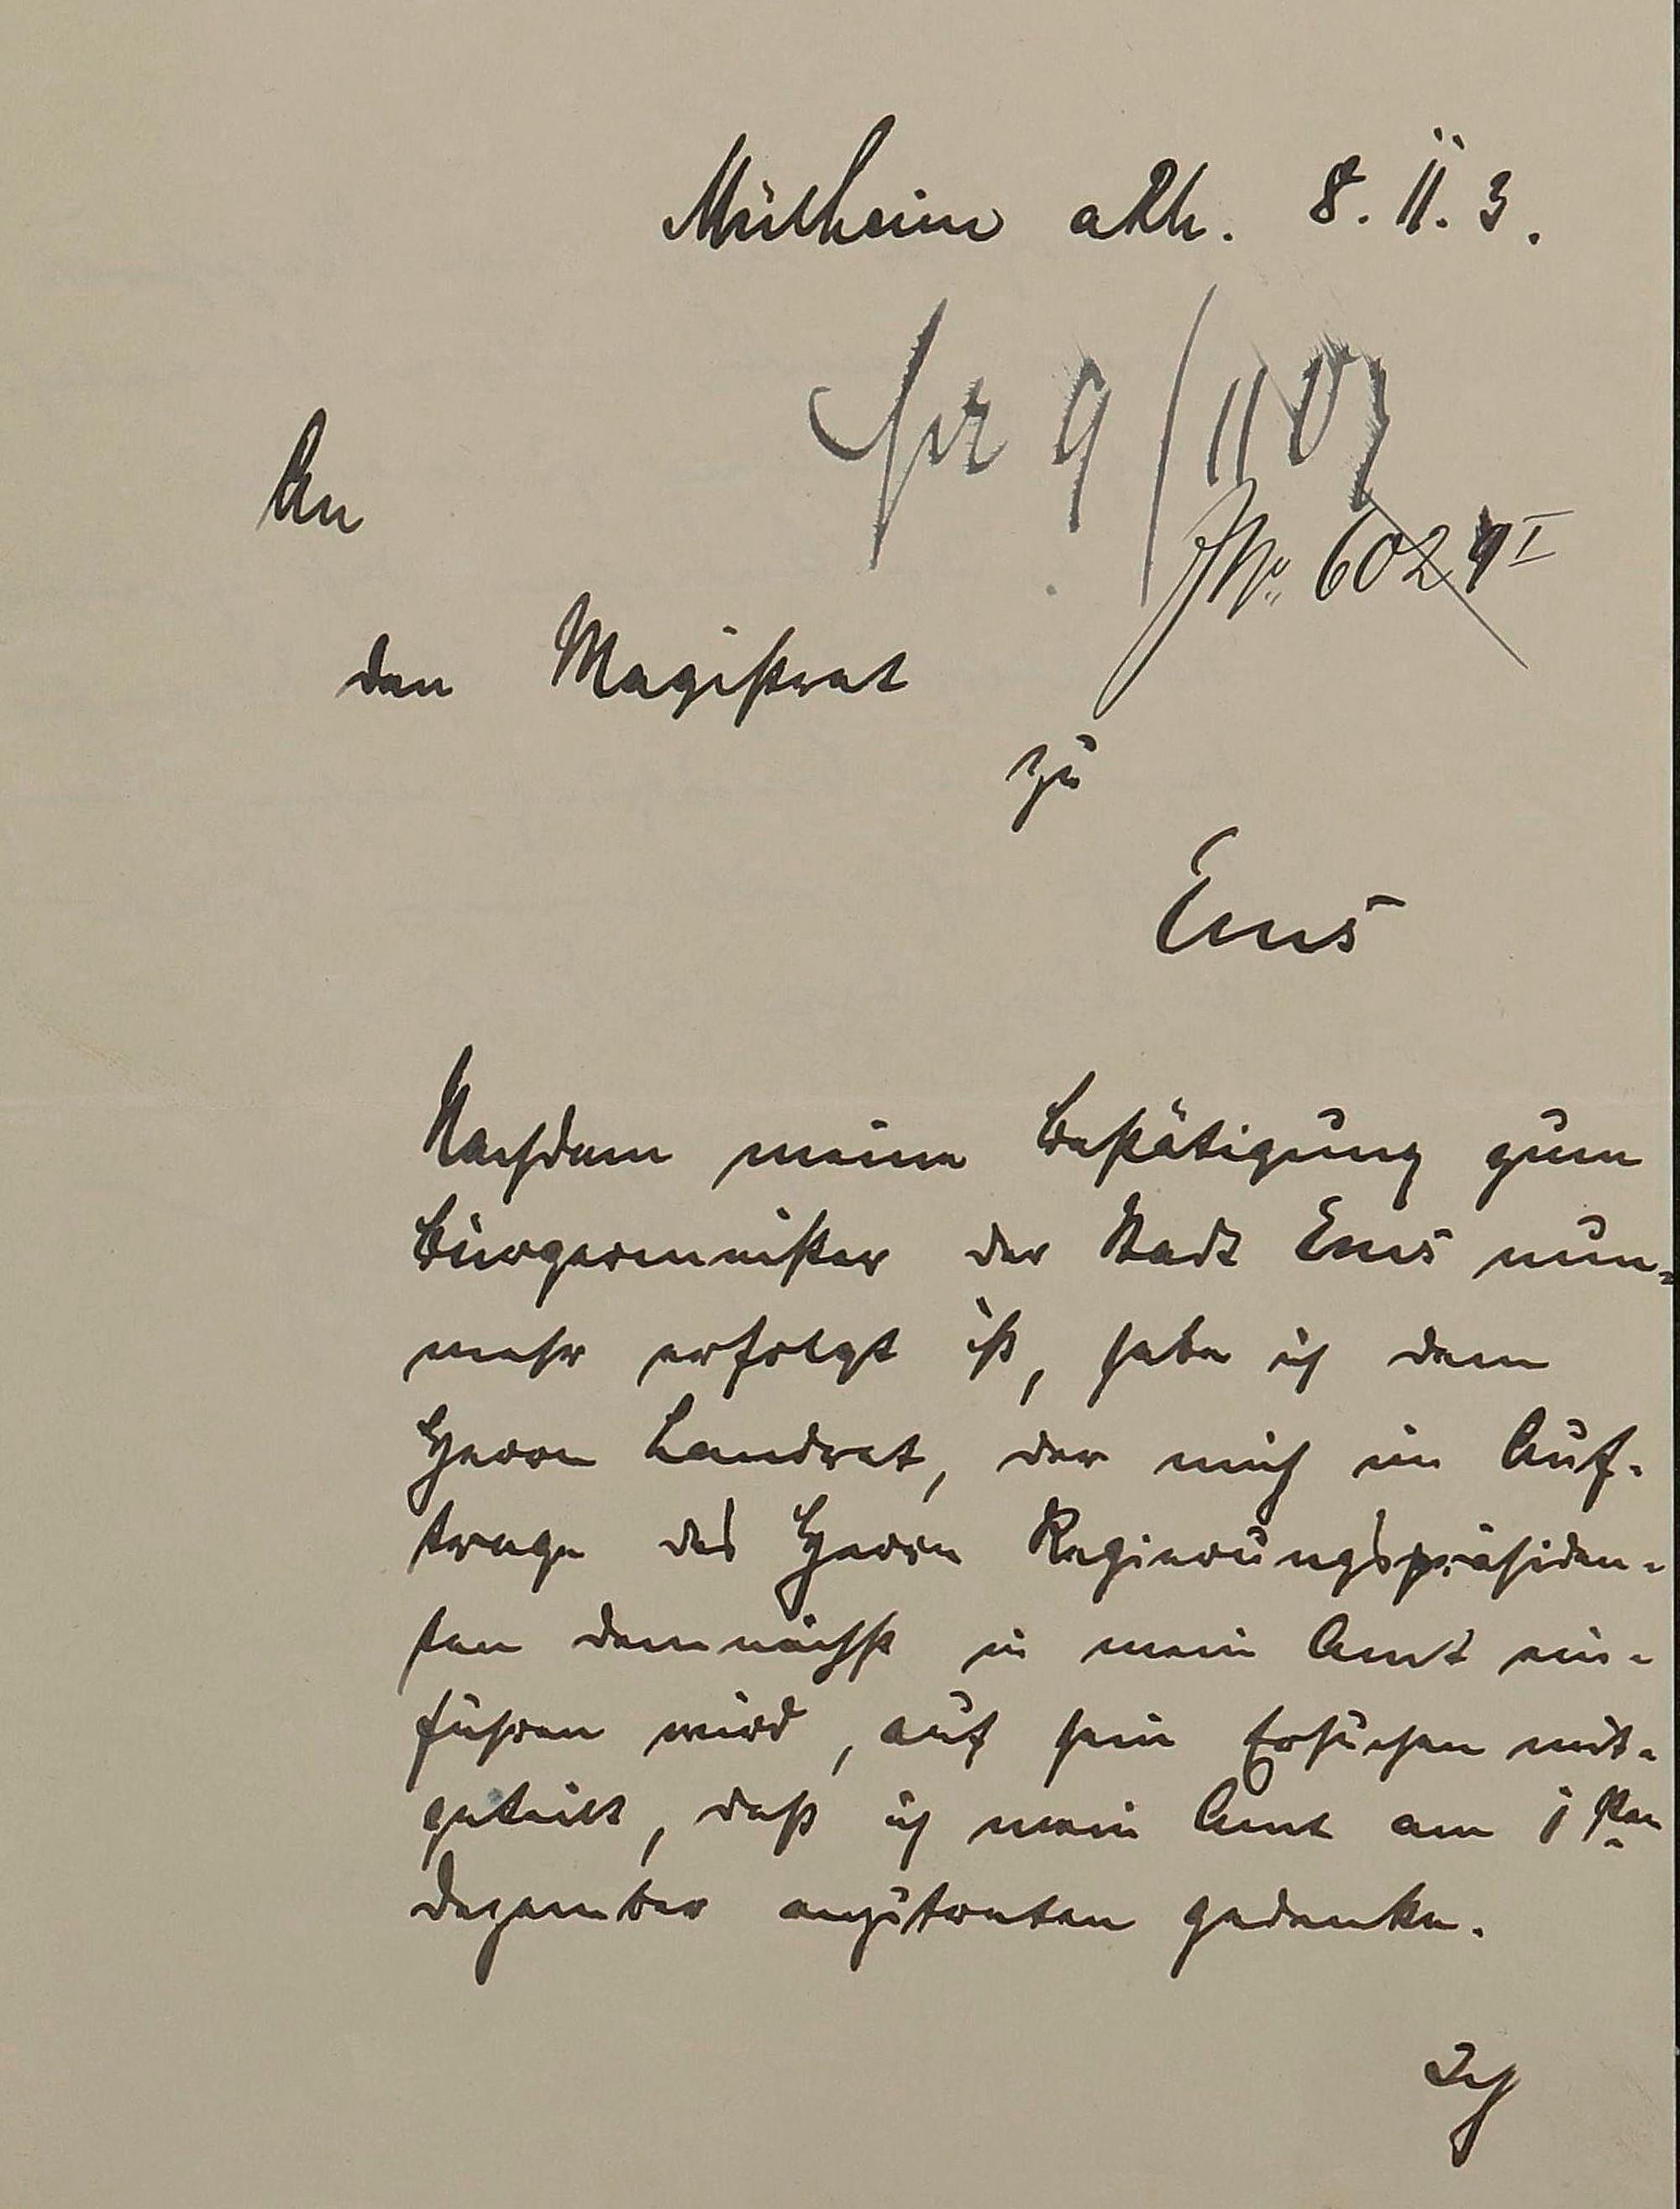 Mülheim aRh. 8. 11. 3.
pr 9/11 03
An
JNr. 6024 I
den Magistrat
zu
Ems
Nachdem meine Bestätigung zum
Bürgermeister der Stadt Ems nun-
mehr erfolgt ist, habe ich dem
Herrn Landrat, der mich im Auf-
trage des Herrn Regierungspräsiden-
ten demnächst in mein Amt ein-
führen wird, auf sein Ersuchen mit-
geteilt, daß ich mein Amt am 1sten
Dezember anzutreten gedenke.
Ich